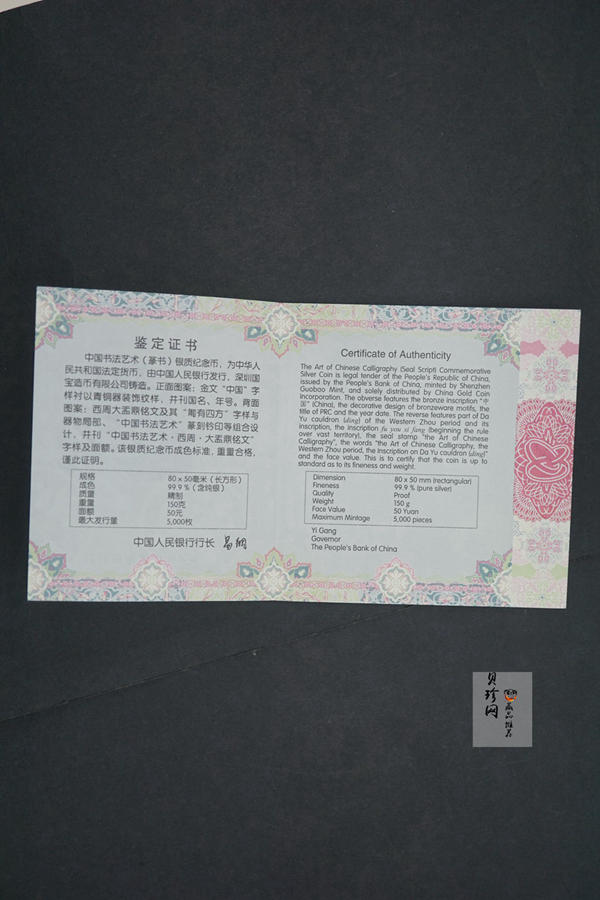 鉴定证书
中国书法艺术（篆书）银质纪念币，为中华人
民共和国法定货币，由中国人民银行发行，深圳国
宝造币有限公司铸造。正面图案：金文“中国”字
样衬以青铜器装饰纹样，并刊国名、年号。背面
图案：西周大盂鼎铭文及其“匍有四方”字样与
器物局部、“中国书法艺术”篆刻钤印等组合设
计，并刊“中国书法艺术·西周·大盂鼎铭文”
字样及面额。该银质纪念币成色标准，重量合格，
谨此证明。
规格 80×50毫米（长方形）
成色 99.9％（含纯银）
质量 精制
重量 150克
面额 50元
最大发行量 5,000枚
中国人民银行行长 易纲
Certificate of Authenticity
The Art of Chinese Calligraphy (Seal Script) Commemorative
Silver Coin is legal tender of the People's Republic of China,
issued by the People's Bank of China, minted by Shenzhen
Guobao Mint, and solely distributed by China Gold Coin
Incorporation. The obverse features the bronze inscription "中
国" (China), the decorative design of bronzeware motifs, the
title of PRC and the year date. The reverse features part of Da
Yu cauldron (ding) of the Western Zhou period and its
inscription, the inscription fu you si fang (beginning the rule
over vast territory), the seal stamp "the Art of Chinese
Calligraphy", the words "the Art of Chinese Calligraphy, the
Western Zhou period, the Inscription on Da Yu cauldron (ding)"
and the face value. This is to certify that the coin is up to
standard as to its fineness and weight.
Dimension 80 x 50 mm (rectangular)
Fineness 99.9 % (pure silver)
Quality Proof
Weight 150 g
Face Value 50 Yuan
Maximum Mintage 5,000 pieces
Yi Gang
Governor
The People's Bank of China
贝珍网
藏品推荐